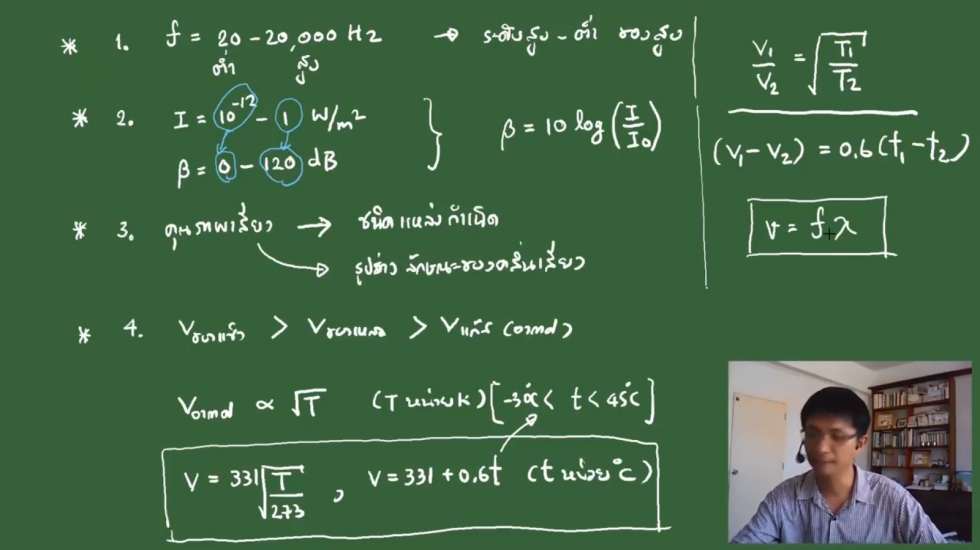 * 1. f = 20 - 20,000 Hz → ระดับสูง - ต่ำ ของเสียง
ต่ำ สูง
* 2. I = 10⁻¹² - 1 W/m²
β = 0 - 120 dB
β = 10 log (I/I0)
* 3. คุณภาพเสียง → ชนิดแหล่งกำเนิด
→ รูปร่าง ลักษณะของคลื่นเสียง
* 4. Vของแข็ง > Vของเหลว > Vแก๊ส (อากาศ)
Vอากาศ ∝ √T (T หน่วย K) [ < t < 45°C ]
V = 331 √(T/273) , V = 331 + 0.6t (t หน่วย °C)
V1/V2 = √(T1/T2)
(V1 - V2) = 0.6 (t1 - t2)
v = fλ